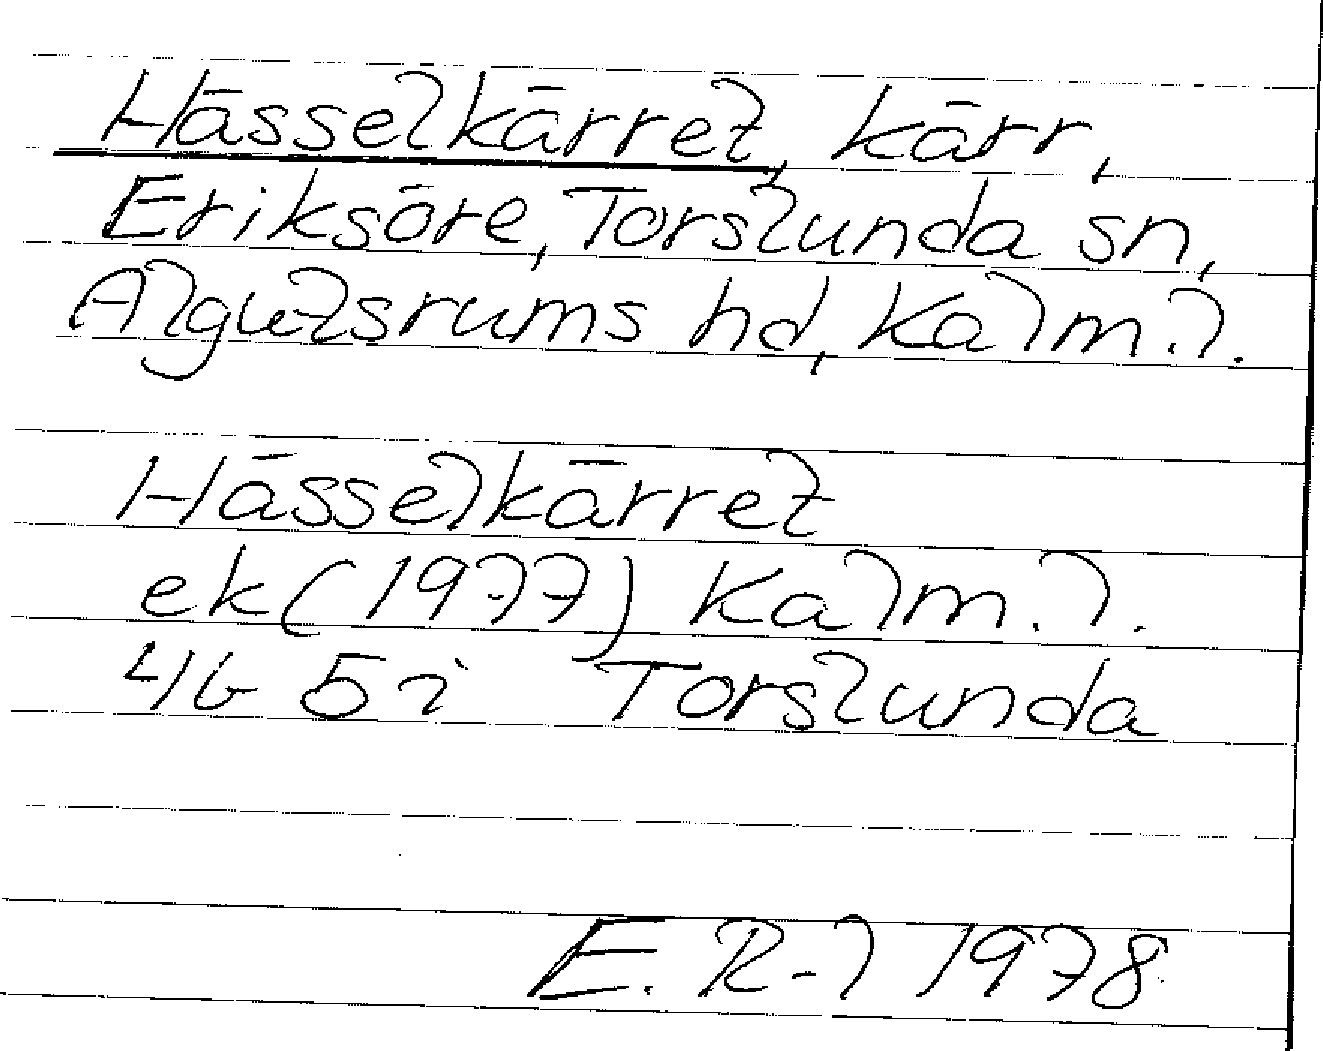 Hässelkärret, kärr,
Eriksöre, Torslunda sn,
Algutsrums hd, Kalm. l.
Hässelkärret
ek (1977) Kalm. l.
4G 5i Torslunda
E. R-l 1978